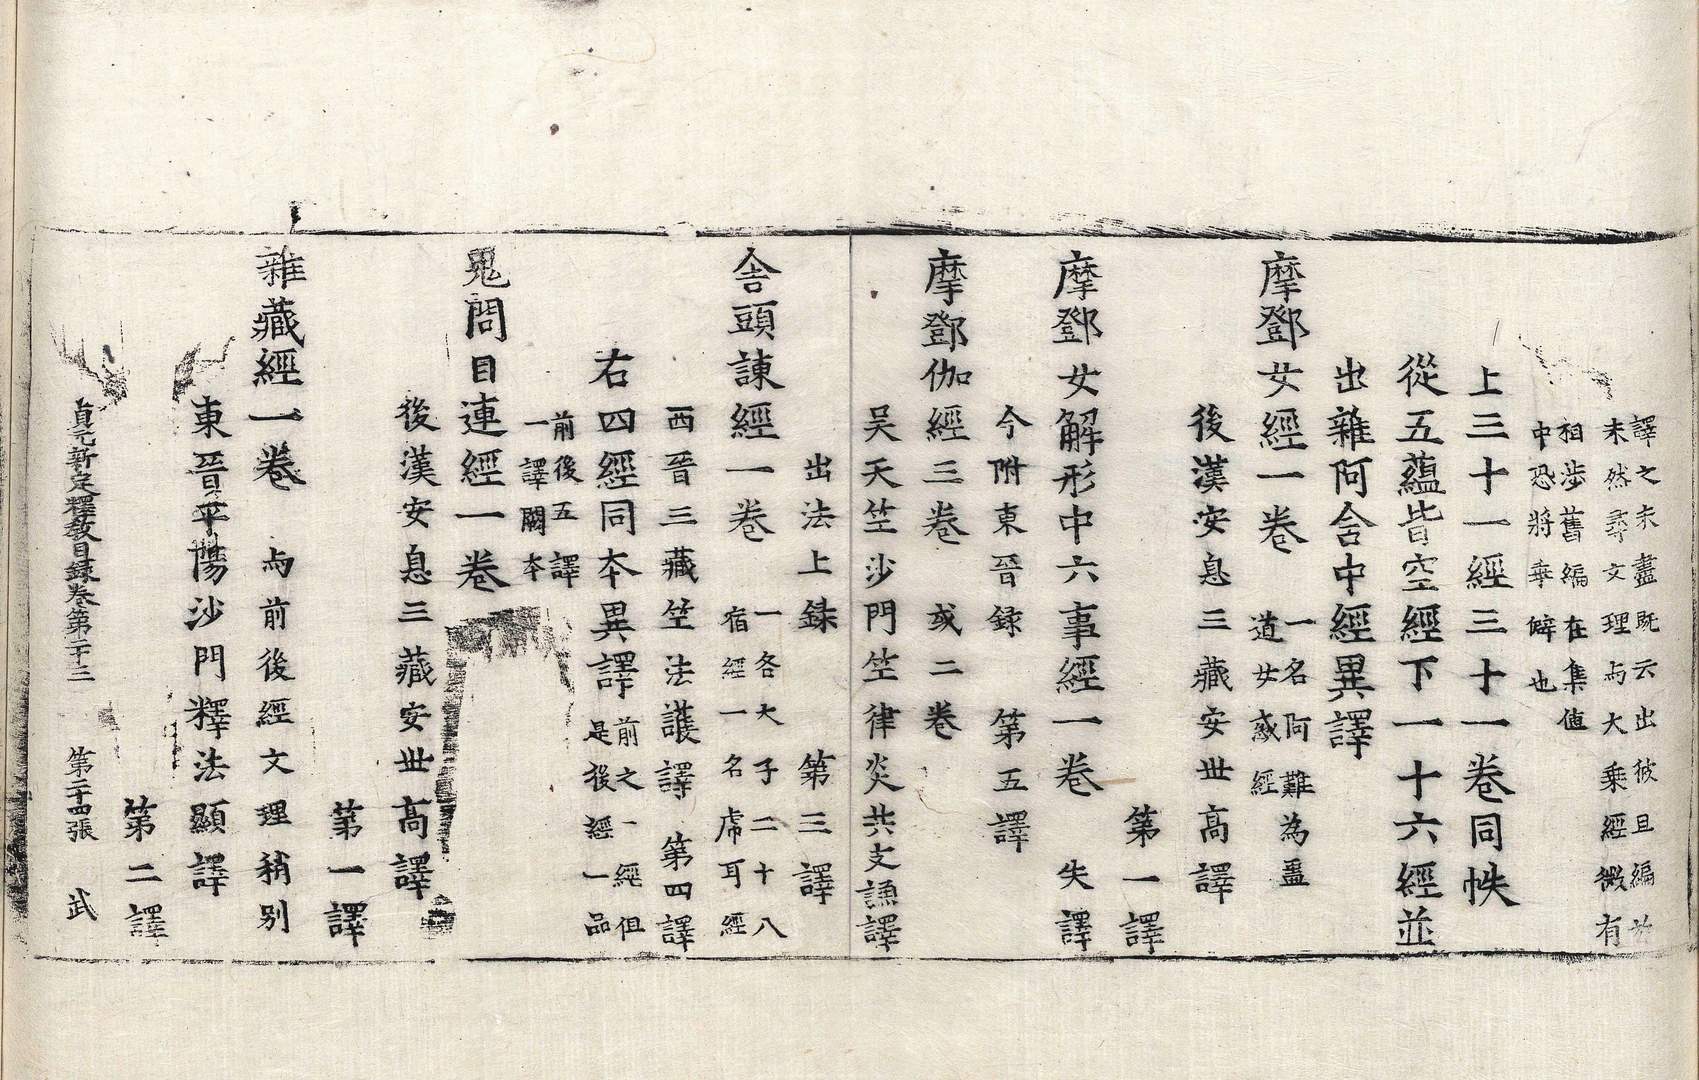 譯之未盡既云出彼且編
未然尋文理与大乘經微有
相涉舊編在集值
中恐將乖僻也
上三十一經三十一卷同帙
從五蘊皆空經下一十六經並
出雜阿含中經異譯
摩鄧女經一卷 一名阿難為蠱
道女惑經
後漢安息三藏安世高譯
第一譯
摩鄧女解形中六事經一卷 失譯
今附東晉錄 第五譯
摩鄧伽經三卷 或二卷
吴天竺沙門竺律炎共支謙譯
出法上錄 第三譯
舍頭諫經一卷 一名大子二十八
宿經一名虎耳經
西晉三藏竺法護譯 第四譯
右四經同本異譯 前之一經但
是後經一品
前後五譯
一譯闕本
鬼問目連經一卷
後漢安息三藏安世高譯
第一譯
雜藏經一卷 与前後經文理稍别
東晉平陽沙門釋法顯譯
第二譯
貞元新定釋教目錄卷第二十三 第二十四張 武